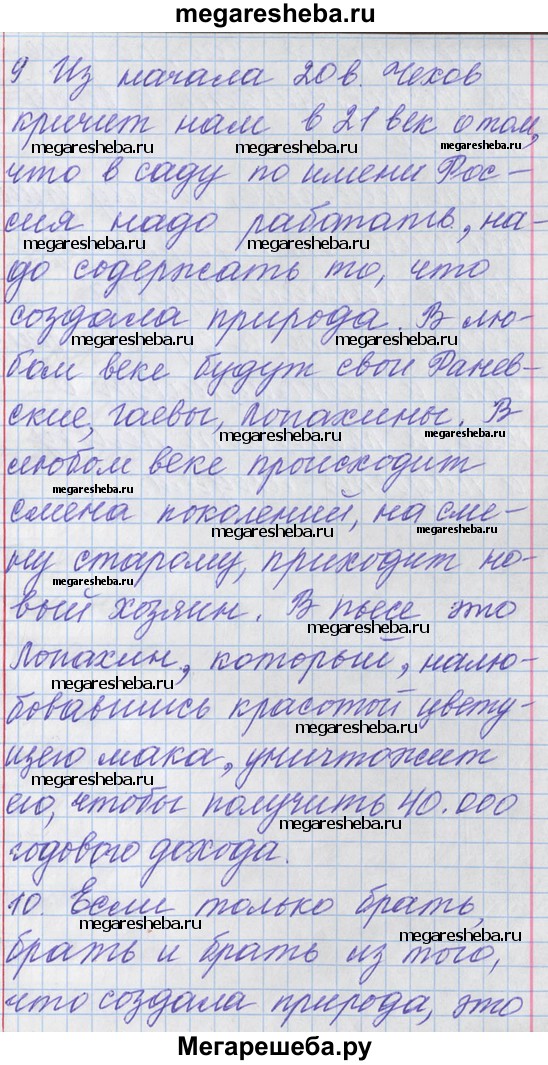 megaresheba.ru
9 Из начала 20в. Чехов
кричит нам в 21 век о том,
megaresheba.ru megaresheba.ru megaresheba.ru
что в саду по имени Рос-
megaresheba.ru
сия надо работать, на-
megaresheba.ru megaresheba.ru
до содержать то, что
создала природа. В лю-
megaresheba.ru megaresheba.ru
бом веке будут свои Ранев-
ские, Гаевы, Лопахины. В
megaresheba.ru megaresheba.ru
любом веке происходит
megaresheba.ru
смена поколений, на сме-
megaresheba.ru megaresheba.ru
ну старому, приходит но-
megaresheba.ru
вый хозяин. В пьесе это
megaresheba.ru
Лопахин, который, налю-
megaresheba.ru
бовавшись красотой цвету-
megaresheba.ru
щего мака, уничтожит
megaresheba.ru
его, чтобы получить 40.000
megaresheba.ru
годового дохода.
10. Если только брать,
megaresheba.ru megaresheba.ru
брать и брать из того,
что создала природа, это
Мегарешеба.ру